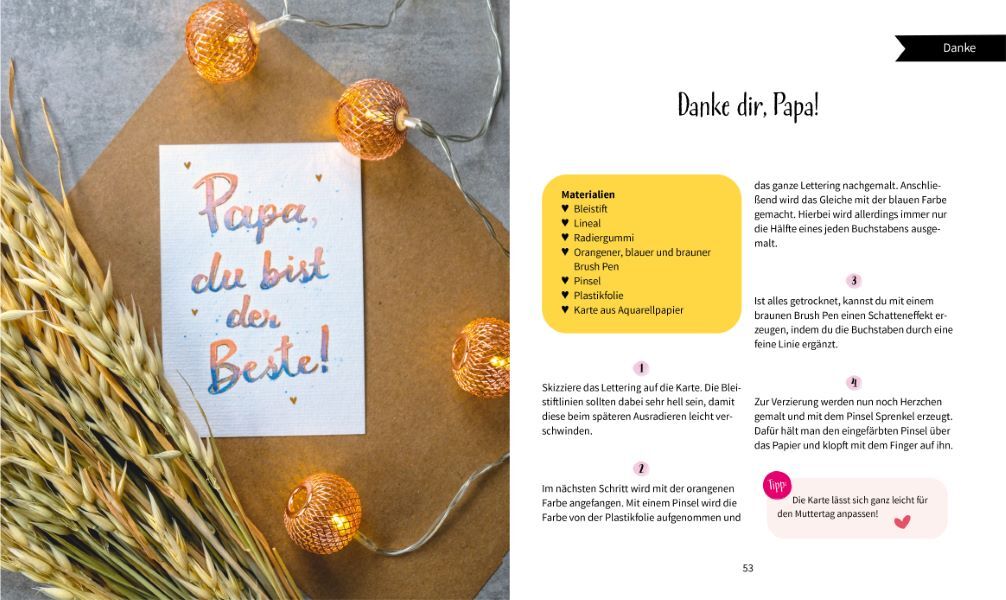 Papa,
du bist
der
Beste!
Danke
Danke dir, Papa!
Materialien
♥ Bleistift
♥ Lineal
♥ Radiergummi
♥ Orangener, blauer und brauner
Brush Pen
♥ Pinsel
♥ Plastikfolie
♥ Karte aus Aquarellpapier
1
Skizziere das Lettering auf die Karte. Die Blei-
stiftlinien sollten dabei sehr hell sein, damit
diese beim späteren Ausradieren leicht ver-
schwinden.
2
Im nächsten Schritt wird mit der orangenen
Farbe angefangen. Mit einem Pinsel wird die
Farbe von der Plastikfolie aufgenommen und
das ganze Lettering nachgemalt. Anschlie-
ßend wird das Gleiche mit der blauen Farbe
gemacht. Hierbei wird allerdings immer nur
die Hälfte eines jeden Buchstabens ausge-
malt.
3
Ist alles getrocknet, kannst du mit einem
braunen Brush Pen einen Schatteneffekt er-
zeugen, indem du die Buchstaben durch eine
feine Linie ergänzt.
4
Zur Verzierung werden nun noch Herzchen
gemalt und mit dem Pinsel Sprenkel erzeugt.
Dafür hält man den eingefärbten Pinsel über
das Papier und klopft mit dem Finger auf ihn.
Tipp:
Die Karte lässt sich ganz leicht für
den Muttertag anpassen!
53